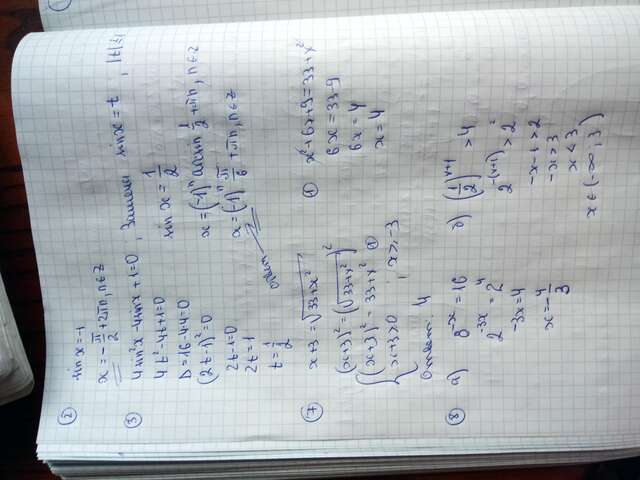 ②
sin x = -1
x = -π/2 + 2πn, n∈z
③
4 sin²x - 4 sin x + 1 = 0, Замена sin x = t, |t|≤1
4t² - 4t + 1 = 0
D = 16 - 4·4 = 0
(2t-1)² = 0
2t - 1 = 0
2t = 1
t = 1/2
sin x = 1/2
x = (-1)ⁿ arcsin 1/2 + πn, n∈z
x = (-1)ⁿ π/6 + πn, n∈z
ответ
⑦
x+3 = √(33+x²)
(x+3)² = (√(33+x²))²
{ (x+3)² = 33+x² ①
x+3 > 0 ; x > -3
Ответ: 4
① x² + 6x + 9 = 33 + x²
6x = 33 - 9
6x = 4
x = 4
⑧
а) 8⁻ˣ = 16
2⁻³ˣ = 2⁴
-3x = 4
x = -4/3
б) (1/2)ˣ⁺¹ > 4
2⁻⁽ˣ⁺¹⁾ > 2²
-x - 1 > 2
-x > 3
x < 3
x ∈ (-∞; 3)